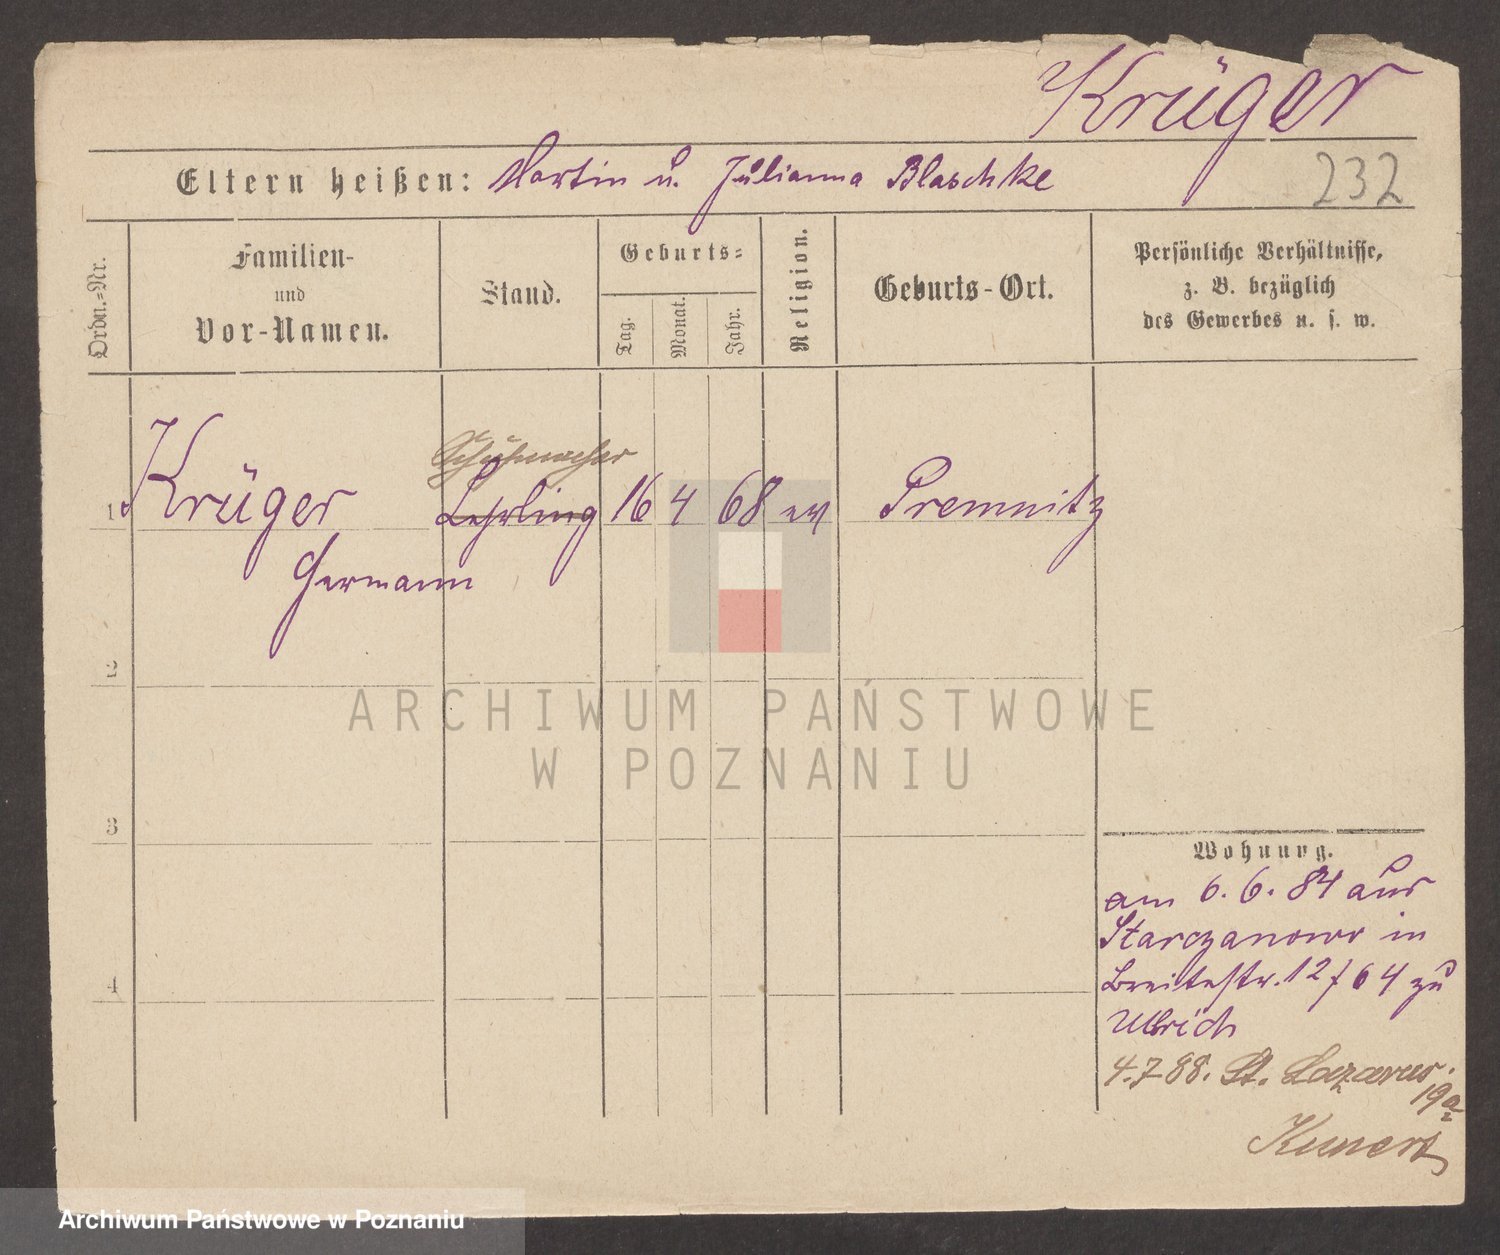 Krüger
Eltern heißen: Martin u. Julianna Blaschke
232
Ordn.=Nr.
Familien-
und
Vor-Namen.
Stand.
Geburts=
Tag.
Monat.
Jahr.
Religion.
Geburts-Ort.
Persönliche Verhältnisse,
z. B. bezüglich
des Gewerbes u. s. w.
Schuhmacher
1 Krüger Lehrling 16 4 68 ev Premnitz
Hermann
2
3
4
Wohnung.
am 6. 6. 84 aus
Starczanowo in
Breitestr. 12/64 zu
Ullrich
4.7.88. St. Lazarus.
19a
Kunert
ARCHIWUM PAŃSTWOWE
W POZNANIU
Archiwum Państwowe w Poznaniu